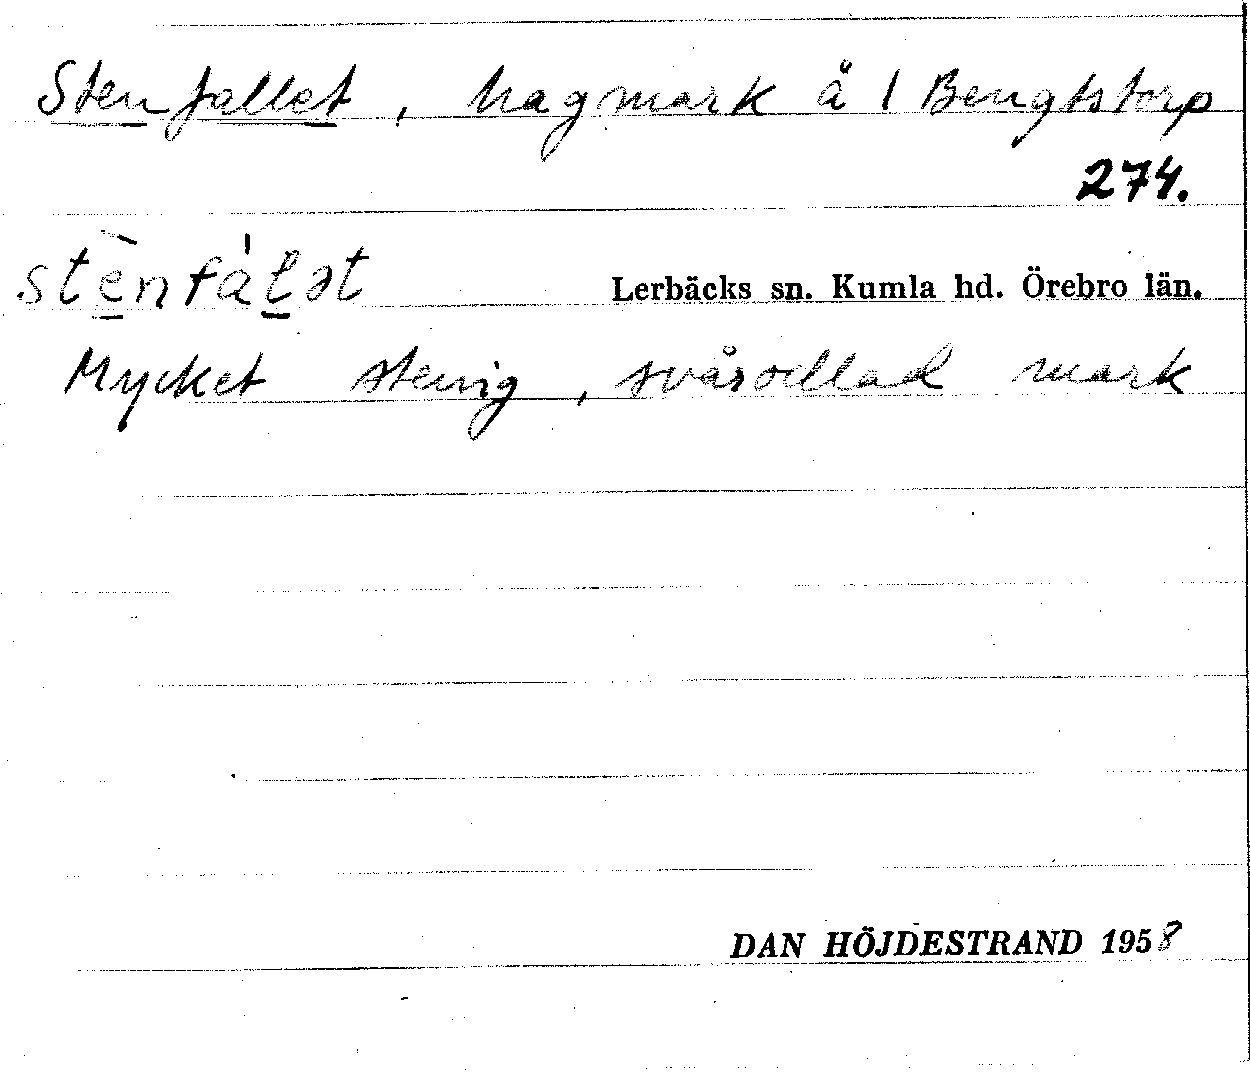 Stenfallet, hagmark å 1 Bengtstorp
274.
stènfálət
Lerbäcks sn. Kumla hd. Örebro län.
Mycket stenig, svårodlad mark
DAN HÖJDESTRAND 1958